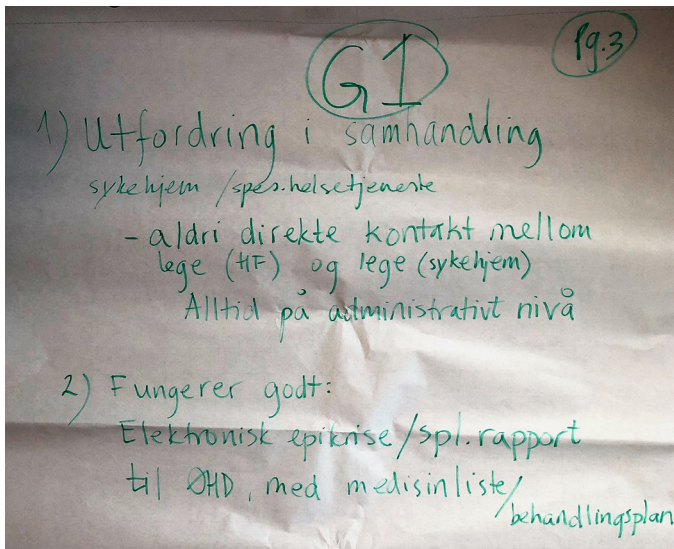 G1
Pg.3
1) Utfordring i samhandling
sykehjem /spes.helsetjeneste
- aldri direkte kontakt mellom
lege (HF) og lege (sykehjem)
Alltid på administrativt nivå
2) Fungerer godt:
Elektronisk epikrise/spl.rapport
til ØHD, med medisinliste/
behandlingsplan